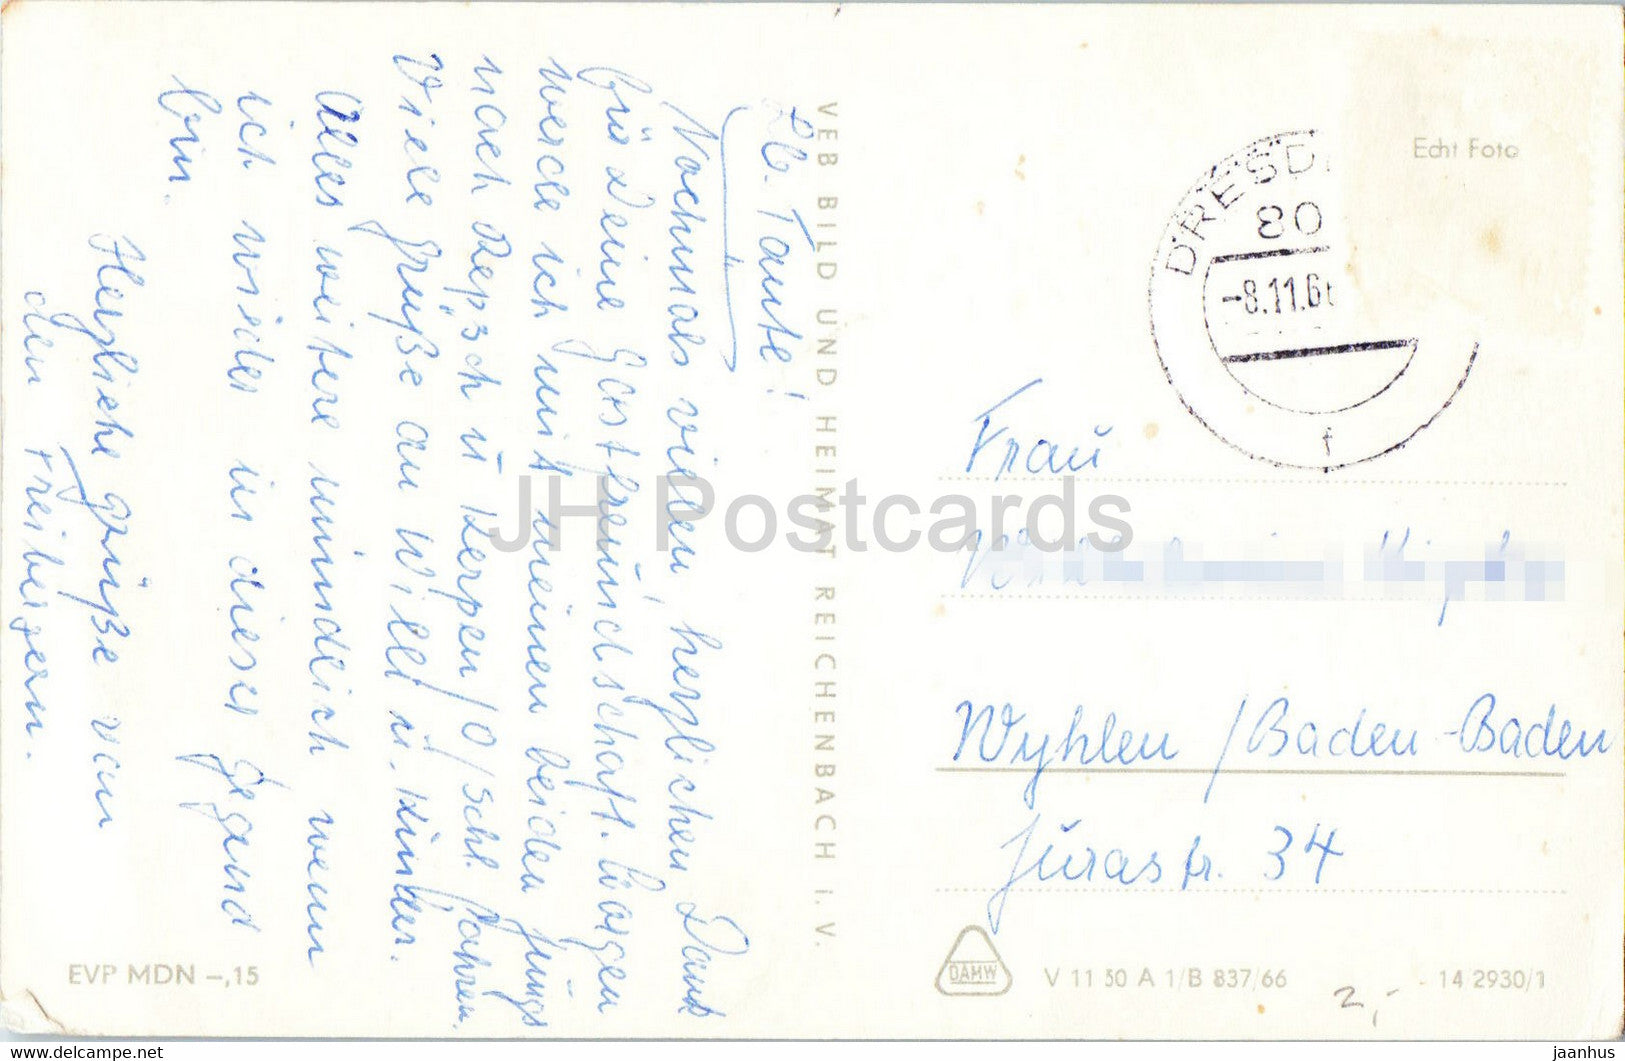 Lb. Tante!
Nochmals vielen, herzlichen Dank
für Deine Gastfreundschaft. Morgen
werde ich mit meinen beiden Jungs
nach Repsch u. Kerpen /O/schl. fahren.
Viele Grüße an Willi u. Kinder.
Alles weitere mündlich wenn
ich wieder in dieser Gegend
bin.
Herzliche Grüße von
den Freibergern.
VEB BILD UND HEIMAT REICHENBACH I. V.
EVP MDN –,15
Echt Foto
DRESD
80
-8.11.66
f
Frau
Wyhlen / Baden-Baden
Jurastr. 34
DAMW
V 11 50 A 1/B 837/66
14 2930/1
2,-
JH Postcards
www.delcampe.net
jaanhus